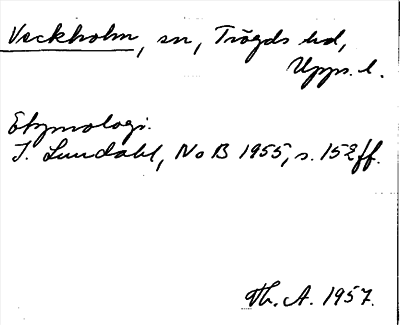 Veckholm, sn, Trögds hd,
Upps. l.
Etymologi.
I. Lundahl, NoB 1955, s. 152ff.
Th. A. 1957.